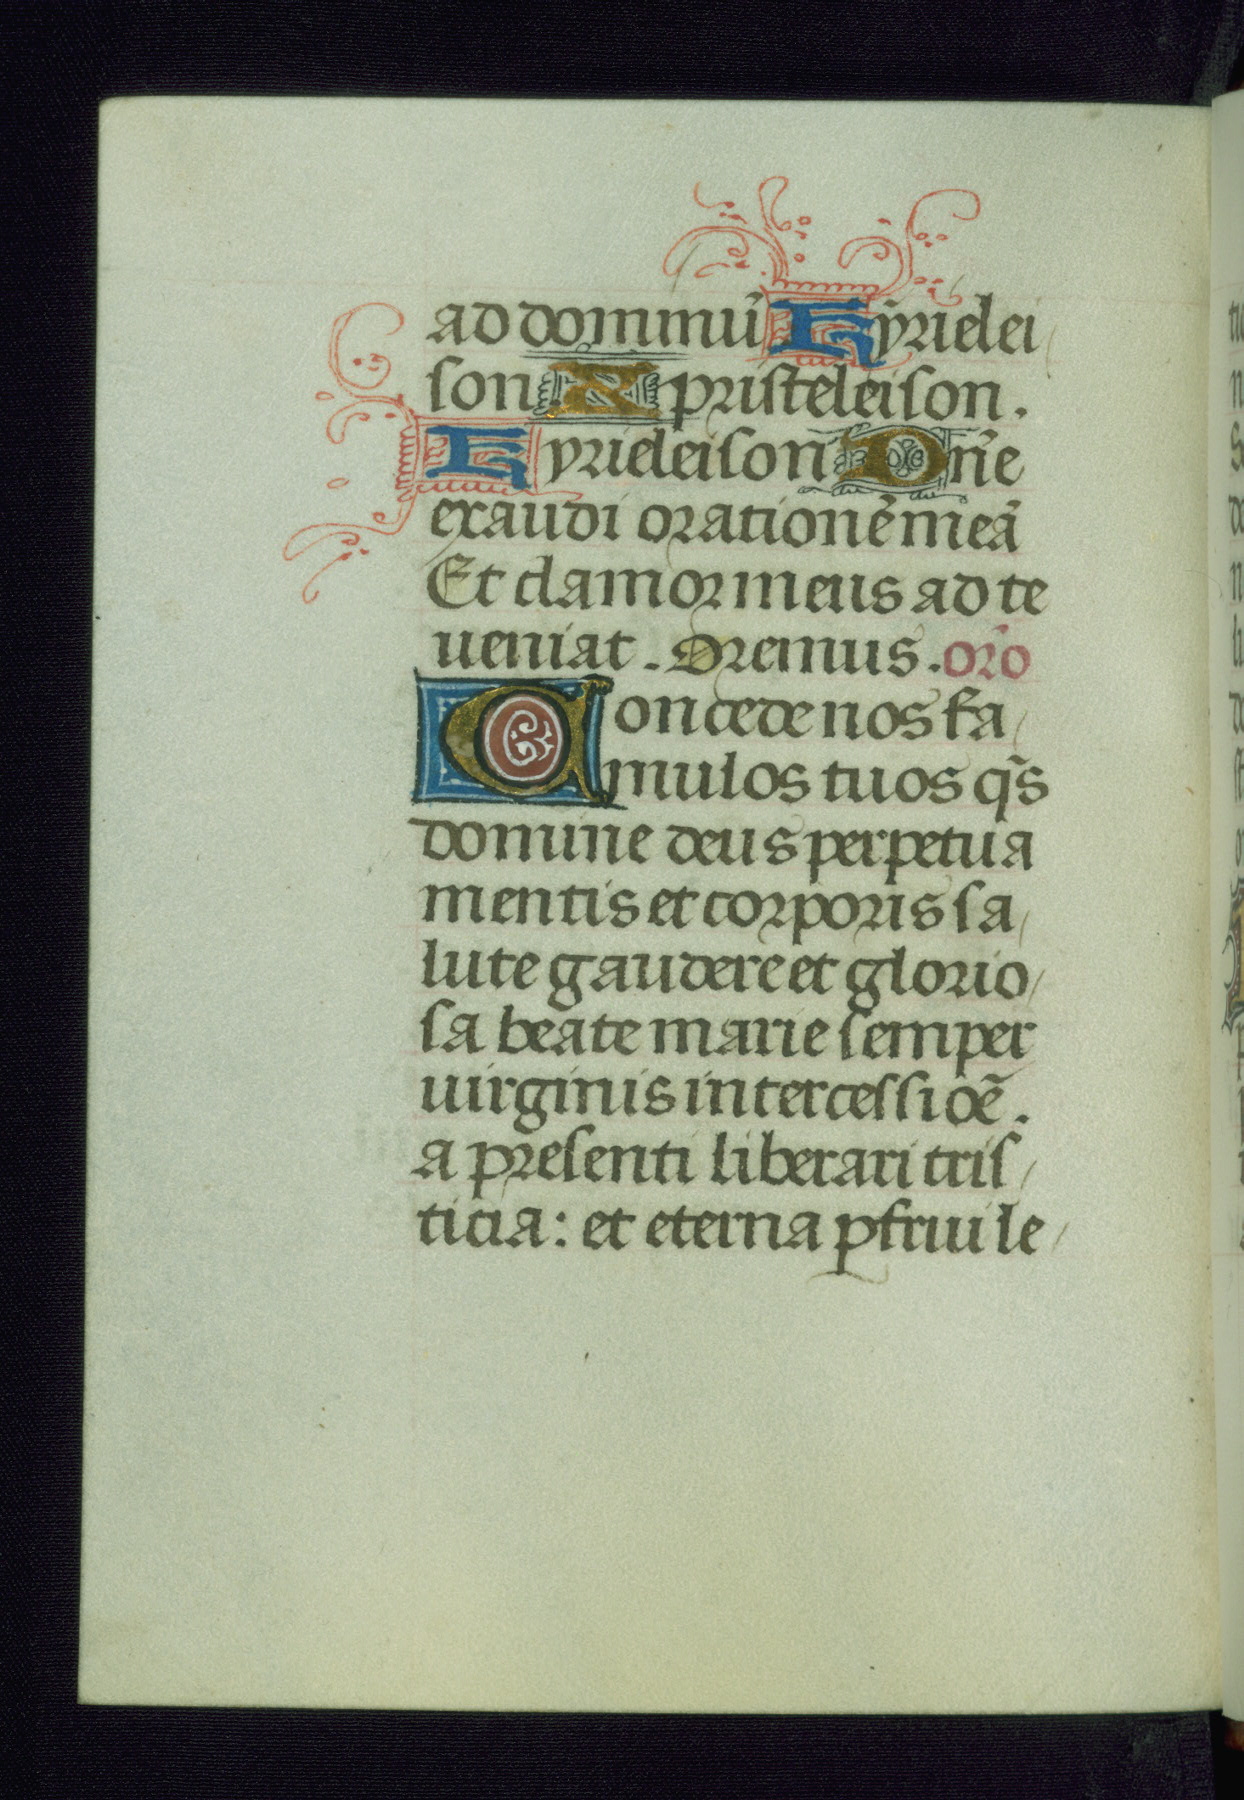 ad dominū Kyrielei
son Xpristeleison.
Kyrieleison Dñe
exaudi orationē meā
Et clamor meus ad te
ueniat. Oremus. orō
Concede nos fa
mulos tuos q̄s
domine deus perpetua
mentis et corporis sa
lute gaudere et glorio
sa beate marie semper
uirginis intercessiōe.
a presenti liberari tris
ticia: et eterna ꝑfrui le